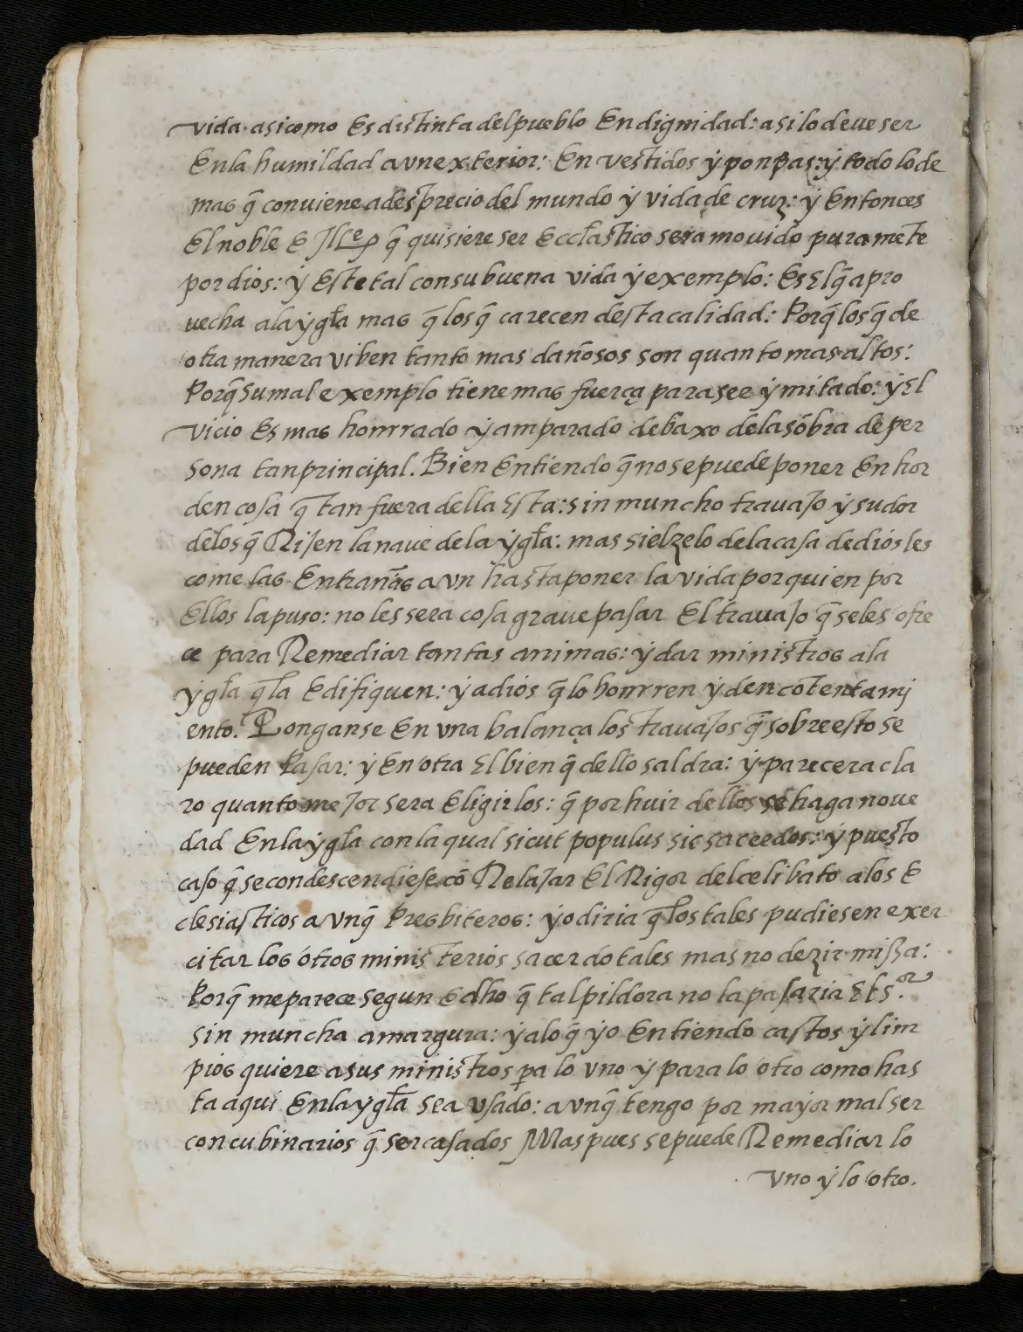 vida. asicomo Es distinta del pueblo En dignidad: asi lo deue ser
En la humildad avn exterior: En vestidos ÿ ponpas: ÿ todo lo de
mas q̃ conuiene a desprecio del mundo ÿ vida de cruz: ÿ Entonces
El noble E Ille q̃ quisiere ser Eccłastico sera mouido puramẽte
por dios: ÿ Este tal con su buena vida ÿ exemplo: Es El q̃ apro
uecha ala ÿgła mas q̃ los q̃ carecen desta calidad: Porq̃ los q̃ de
otra manera viben tanto mas dañosos son quanto mas altos:
Porq̃ su mal exemplo tiene mas fuerça para ser ÿmitado: ÿ El
vicio Es mas honrrado ÿ amparado debaxo dela sõbra de per
sona tan principal. Bien Entiendo q̃ no se puede poner En hor
den cosa q̃ tan fuera della Esta: sin muncho trauajo ÿ sudor
delos q̃ Rijen la naue de la ÿgła: mas si el zelo de la casa de dios les
come las Entrañas avn hasta poner la vida por quien por
Ellos la puso: no les sera cosa graue pasar El trauajo q̃ se les ofre
ce para Remediar tantas animas: ÿ dar ministros ala
ÿgła q̃ la Edifiquen: ÿ a dios q̃ lo honrren ÿ den cõtentami
ento. Ponganse En vna balança los trauajos q̃ sobre esto se
pueden Pasar: ÿ En otra El bien q̃ dello saldra: ÿ parecera cla
ro quanto mejor sera Eligirlos: q̃ por huir dellos se haga noue
dad En la ÿgła con la qual sicut populus sic sacerdos: ÿ puesto
caso q̃ se condescendiese cõ Relajar El Rigor del celibato alos E
clesiasticos avnq̃ Presbiteros: ÿo diria q̃ los tales pudiesen exer
citar los otros ministerios sacerdotales mas no dezir missa:
Porq̃ me parece segun E dho q̃ tal pildora no la pasaria El s.or
sin muncha amargura: ÿ alo q̃ ÿo Entiendo castos ÿ lim
pios quiere a sus ministros pa lo vno ÿ para lo otro como has
ta aqui En la ÿgła sea vsado: avnq̃ tengo por maÿor mal ser
concubinarios q̃ ser casados Mas pues se puede Remediar lo
vno ÿ lo otro.